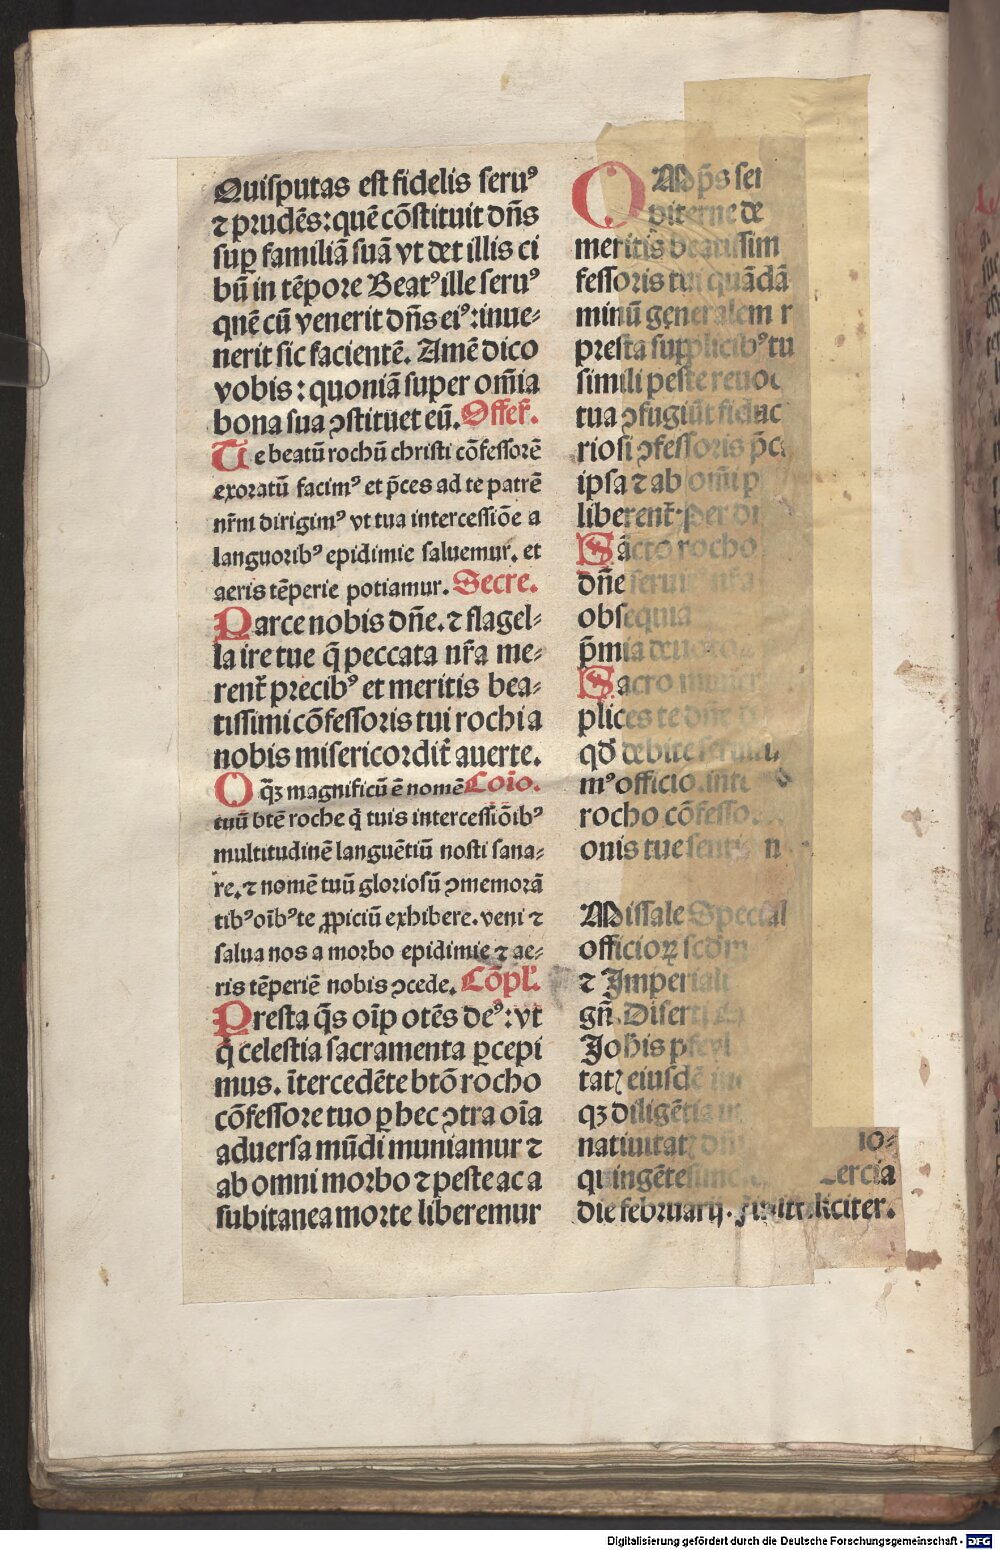 Quisputas est fidelis seruꝰ
⁊ prudēs: quē cōstituit dn̄s
suꝑ familiā suā vt det illis ci
bū in tēpore Beatꝰ ille seruꝰ
quē cū venerit dn̄s eiꝰ: inue⸗
nerit sic facientē. Amē dico
vobis: quoniā super om̄ia
bona sua ꝯstituet eū. Offer̄.
Te beatū rochū christi cōfessorē
exoratū facimꝰ et p̄ces ad te patrē
nr̄m dirigimꝰ vt tua intercessiōe a
languoribꝰ epidimie saluemur. et
aeris tēperie potiamur. Secre.
Parce nobis dn̄e. ⁊ flagel⸗
la ire tue q̄ peccata nr̄a me⸗
rent̄ precibꝰ et meritis bea⸗
tissimi cōfessoris tui rochi a
nobis misericordit̄ auerte.
O qꝫ magnificū ē nomē Cōio.
tuū btē roche q̄ tuis intercessiōibꝰ
multitudinē languētiū nosti sana⸗
re. ⁊ nomē tuū gloriosū ꝯmemorā
tibꝰ oībꝰ te ꝓpiciū exhibere. veni ⁊
salua nos a morbo epidimie ⁊ ae⸗
ris tēperiē nobis ꝯcede. Cōpl̄.
Presta q̄s oīp otēs deꝰ: vt
q̄ celestia sacramenta ꝑcepi
mus. ītercedēte btō rocho
cōfessore tuo ꝑ hec ꝯtra oīa
aduersa mūdi muniamur ⁊
ab omni morbo ⁊ peste ac a
subitanea morte liberemur
OMp̄s sei
piterne de
meritis beatissim
fessoris tui quādā
minū generalem
presta supplicibꝰ tu
simili peste reuoc
tua ꝯfugiūt fiduc
riosi ꝯfessoris p̄c
ipsa ⁊ ab om̄i p
liberent̄. Per dn
Sācto rocho
dn̄e seruit nr̄a
obsequia
p̄mia deuot
Sacro muner
plices te dn̄e
qd̄ debite seruitu
mꝰ officio. inte
rocho cōfesso
onis tue senti
Missale Special
officioꝝ scdm
⁊ Imperiali
gn̄. Diserti
Joh̄is pfeyl
tatꝭ eiusdē
qꝫ diligētia
natiuitatꝭ dn̄i io⸗
quingētesimo ercia
die februarij. finit feliciter.
Digitalisierung gefördert durch die Deutsche Forschungsgemeinschaft - DFG